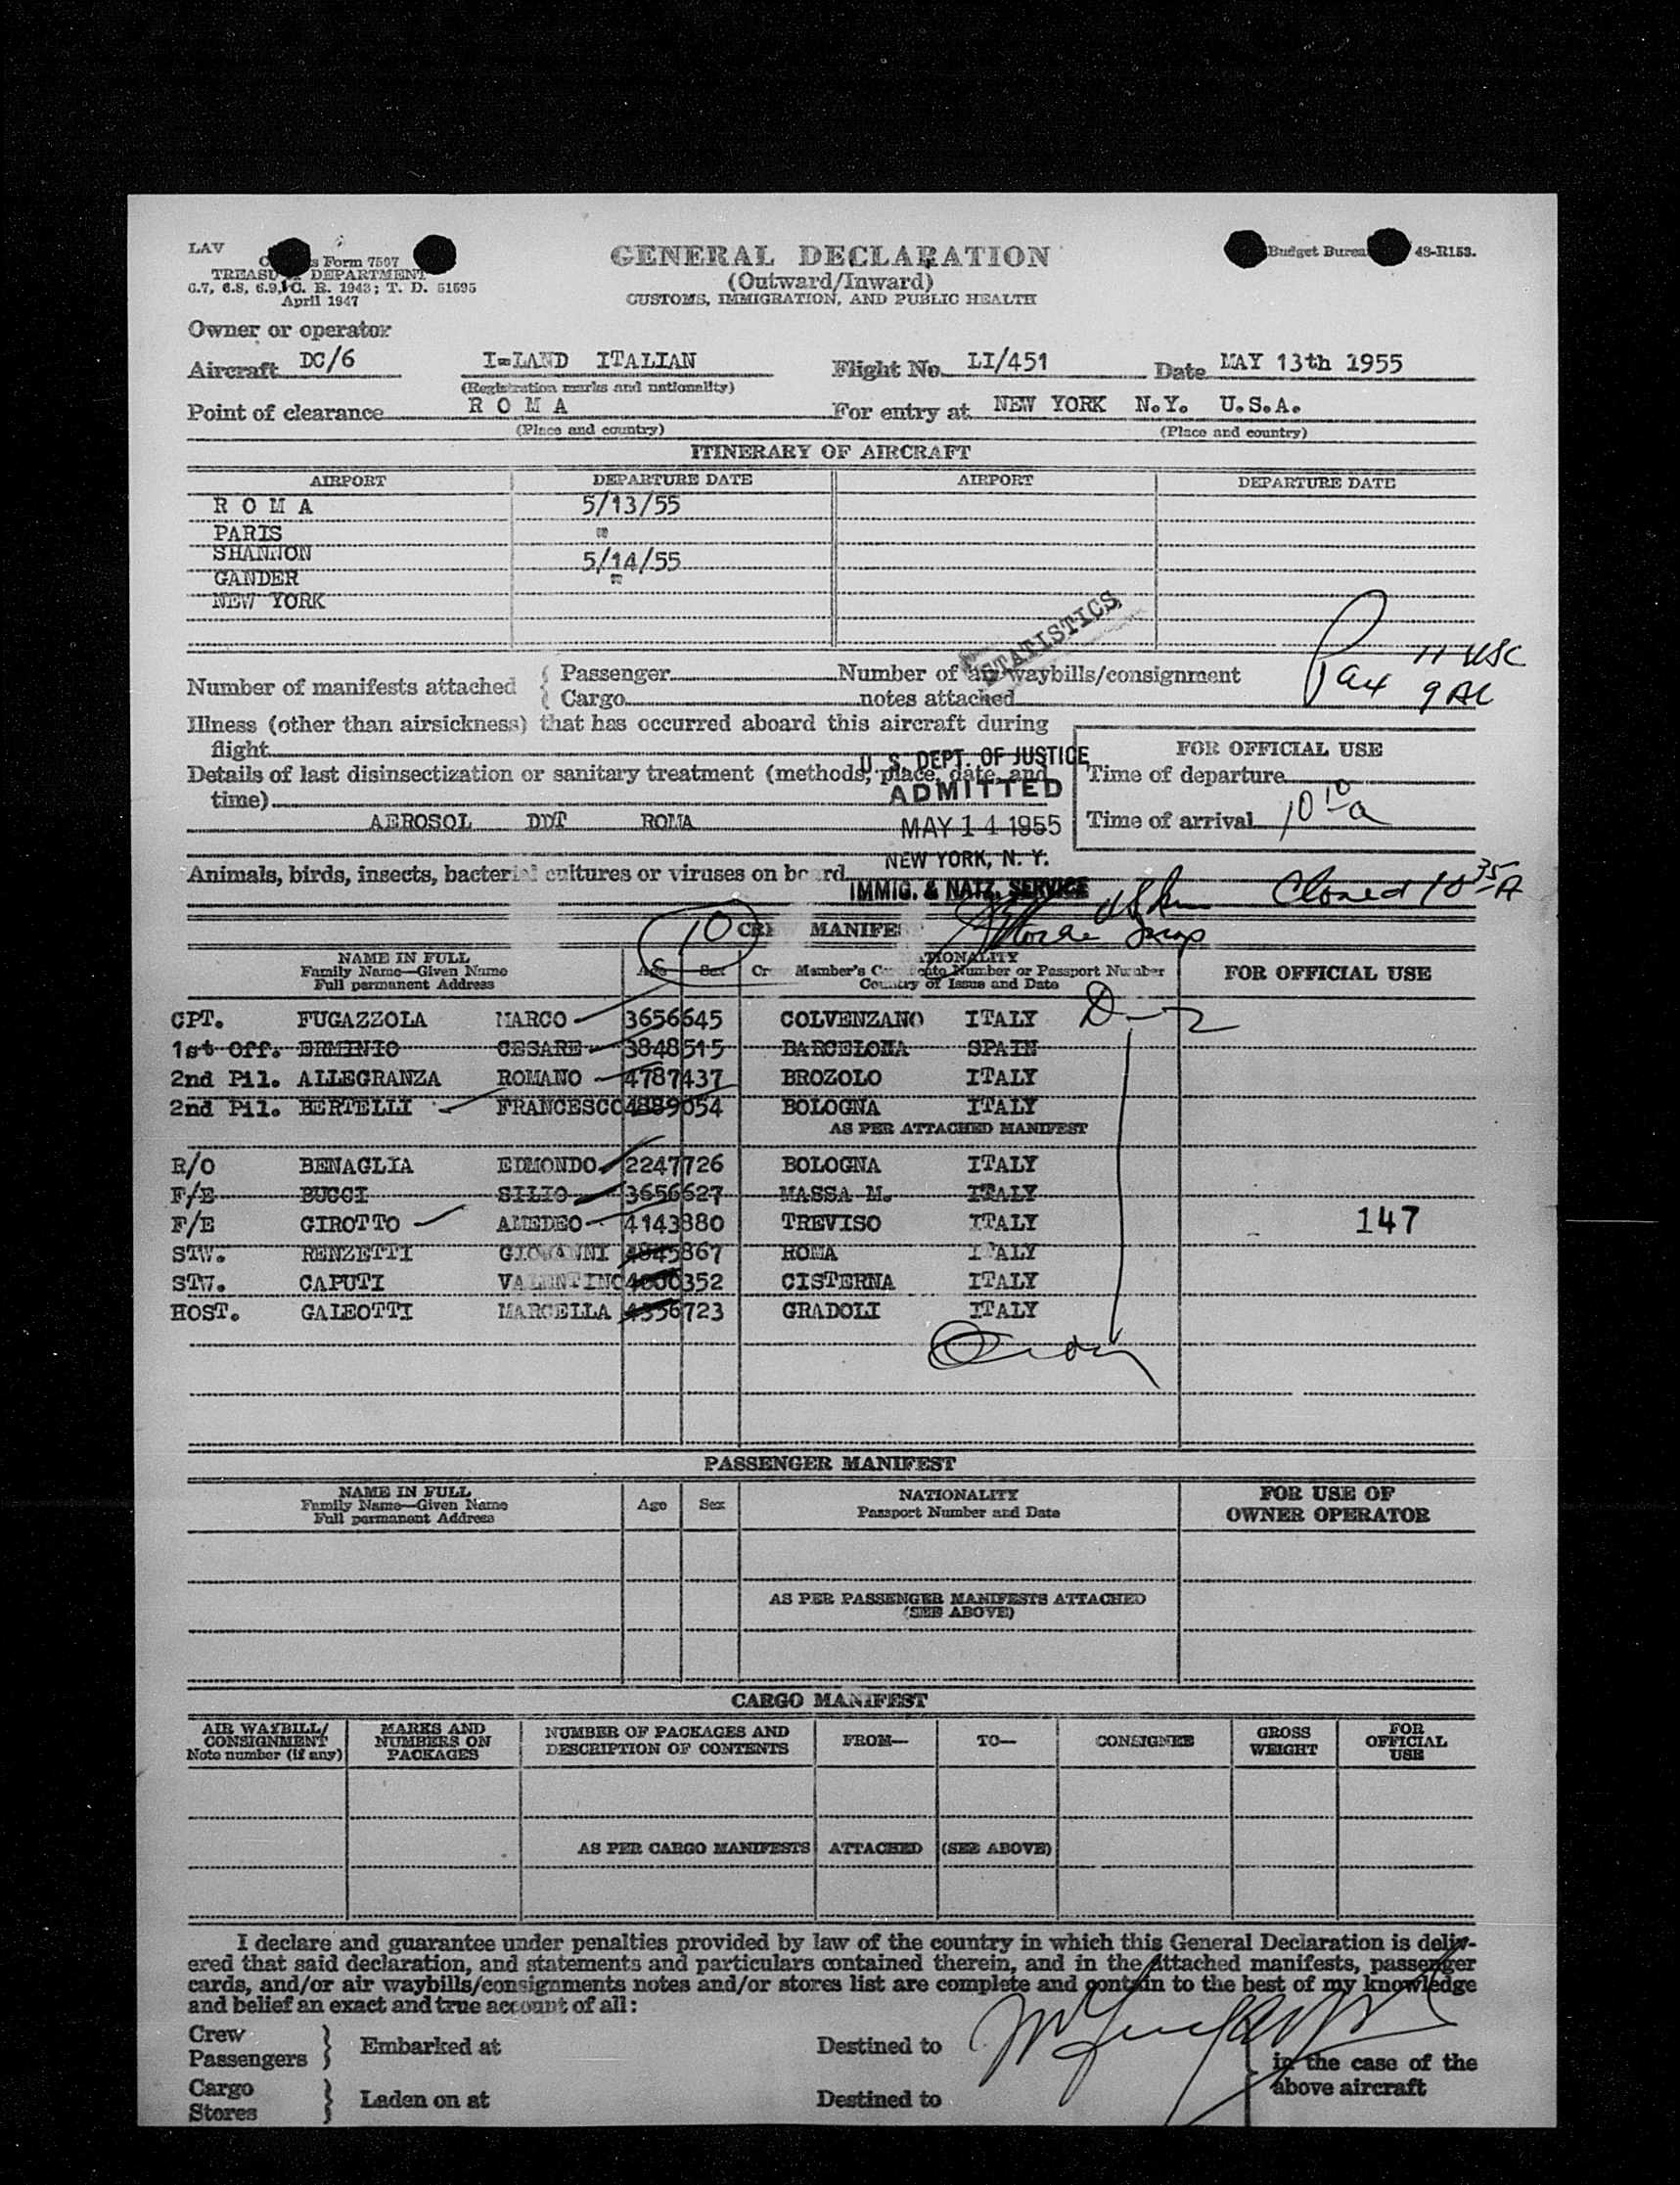 LAV
s Form 7507
TREASU DEPARTMENT
6.7, 6.8, 6.9, C. R. 1943; T. D. 51595
April 1947
GENERAL DECLARATION
(Outward/Inward)
CUSTOMS, IMMIGRATION, AND PUBLIC HEALTH
Budget Burea 48-R153.
Owner or operator
Aircraft DC/6 I-LAND ITALIAN Flight No. LI/451 Date MAY 13th 1955
(Registration marks and nationality)
Point of clearance R O M A For entry at NEW YORK N.Y. U.S.A.
(Place and country) (Place and country)
ITINERARY OF AIRCRAFT
AIRPORT DEPARTURE DATE AIRPORT DEPARTURE DATE
R O M A 5/13/55
PARIS "
SHANNON 5/14/55
GANDER "
NEW YORK
STATISTICS
Pax 11 USC
9 AL
Number of manifests attached { Passenger Number of air waybills/consignment
{ Cargo notes attached
Illness (other than airsickness) that has occurred aboard this aircraft during
flight
Details of last disinsectization or sanitary treatment (methods, place, date, and
time)
AEROSOL DDT ROMA
U. S. DEPT. OF JUSTICE
ADMITTED
MAY 14 1955
NEW YORK, N. Y.
IMMIG. & NATZ. SERVICE
FOR OFFICIAL USE
Time of departure
Time of arrival 10 10 a
Animals, birds, insects, bacterial cultures or viruses on board
Closed 10 35 A
10
CREW MANIFEST
NAME IN FULL
Family Name—Given Name
Full permanent Address
Age Sex
NATIONALITY
Crew Member's Certificate Number or Passport Number
Country of Issue and Date
FOR OFFICIAL USE
CPT. FUGAZZOLA MARCO 3656645 COLVENZANO ITALY D-2
1st Off. ERMINIO CESARE 3848515 BARCELONA SPAIN
2nd Pil. ALLEGRANZA ROMANO 4787437 BROZOLO ITALY
2nd Pil. BERTELLI FRANCESCO 4889054 BOLOGNA ITALY
AS PER ATTACHED MANIFEST
R/O BENAGLIA EDMONDO 2247726 BOLOGNA ITALY
F/E BUCCI SILIO 3656627 MASSA M. ITALY
F/E GIROTTO AMEDEO 4143880 TREVISO ITALY 147
STW. RENZETTI GIOVANNI 4845867 ROMA ITALY
STW. CAPUTI VALENTINO 4000352 CISTERNA ITALY
HOST. GALEOTTI MARCELLA 4356723 GRADOLI ITALY
PASSENGER MANIFEST
NAME IN FULL
Family Name—Given Name
Full permanent Address
Age Sex
NATIONALITY
Passport Number and Date
FOR USE OF
OWNER OPERATOR
AS PER PASSENGER MANIFESTS ATTACHED
(SEE ABOVE)
CARGO MANIFEST
AIR WAYBILL/
CONSIGNMENT
Note number (if any)
MARKS AND
NUMBERS ON
PACKAGES
NUMBER OF PACKAGES AND
DESCRIPTION OF CONTENTS
FROM—
TO—
CONSIGNEE
GROSS
WEIGHT
FOR
OFFICIAL
USE
AS PER CARGO MANIFESTS ATTACHED (SEE ABOVE)
I declare and guarantee under penalties provided by law of the country in which this General Declaration is deliv-
ered that said declaration, and statements and particulars contained therein, and in the attached manifests, passenger
cards, and/or air waybills/consignments notes and/or stores list are complete and contain to the best of my knowledge
and belief an exact and true account of all:
Crew
Passengers } Embarked at Destined to
in the case of the
above aircraft
Cargo
Stores } Laden on at Destined to